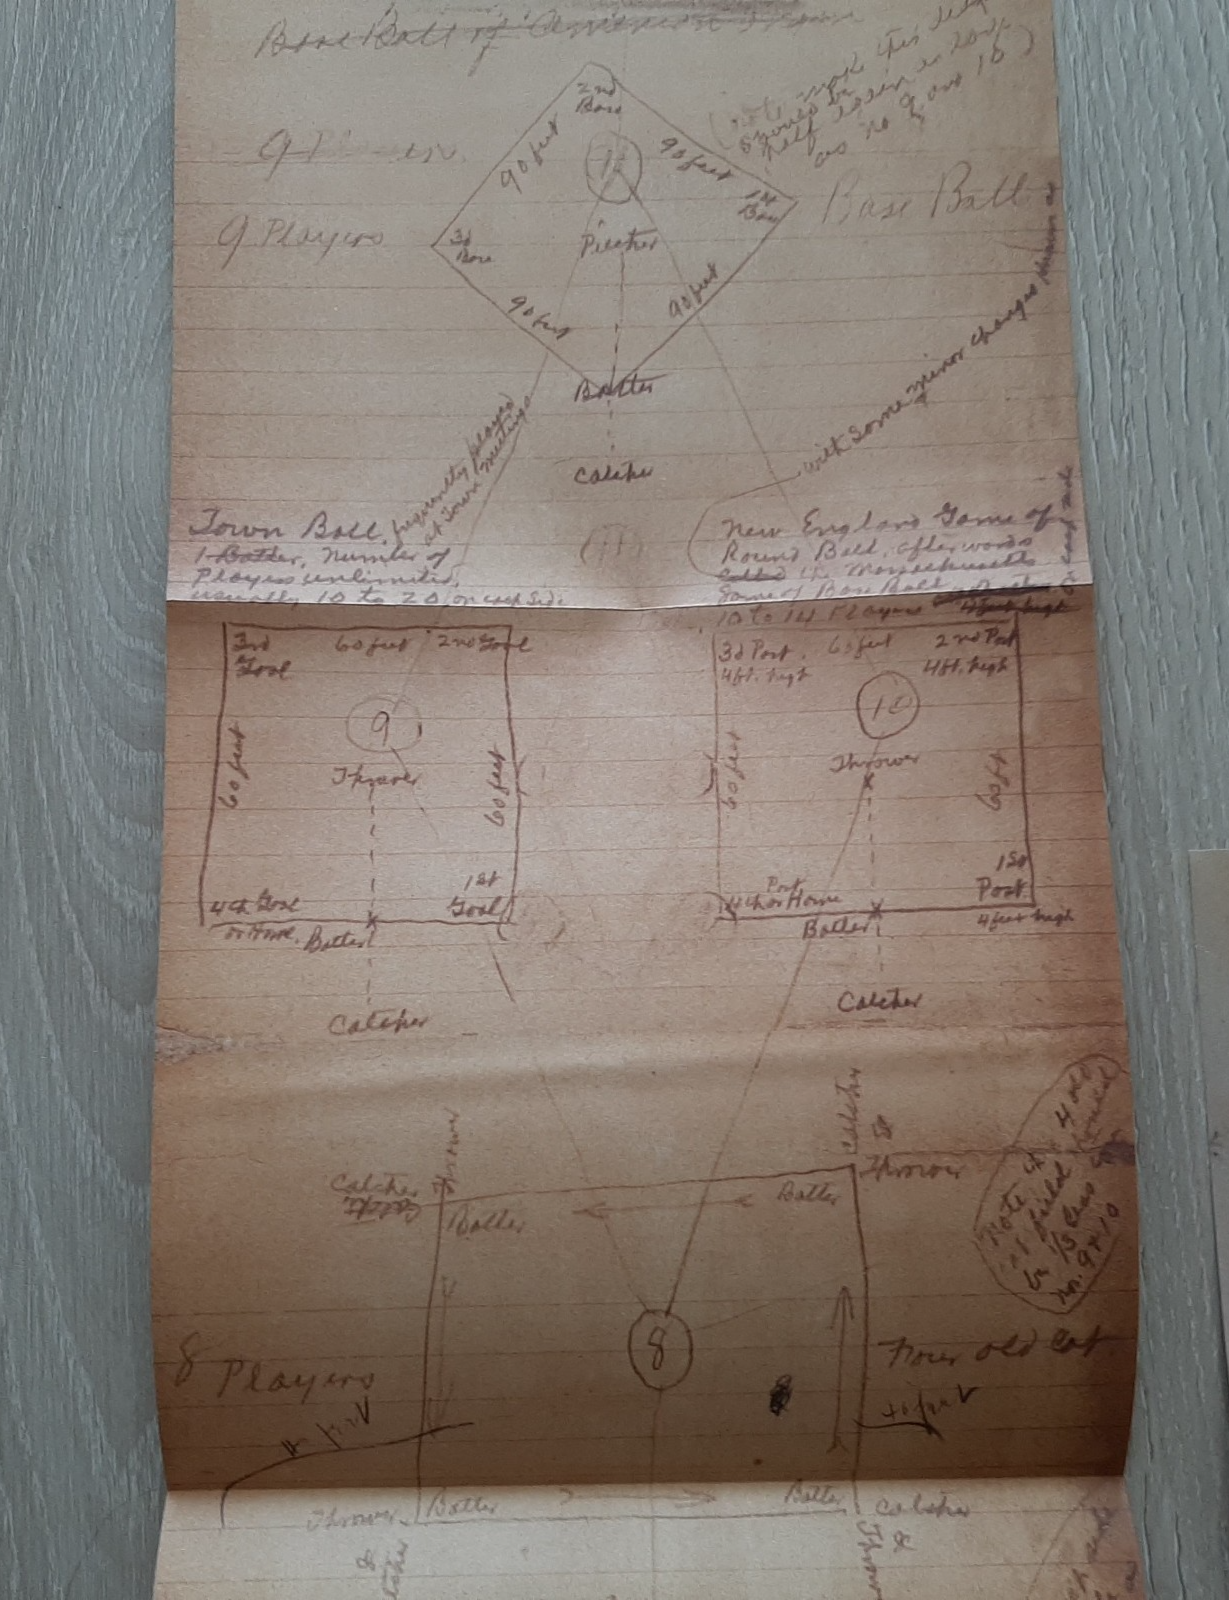 Base Ball of American
(note make this
should be
half again as
as no 9 and 10)
2nd
Base
90 feet
11
90 feet
1st
Base
Base Ball
9 Players
3d
Base
Pitcher
90 feet
90 feet
Batter
Catcher
with some minor changes shown
Town Ball, frequently played
at Town meetings
1 Batter, number of
Players unlimited,
usually 10 to 20 on each side
(11)
New England Game of
Round Ball, afterwards
called the Massachusetts
Game of Base Ball
10 to 14 Players on each side
4 feet high
3rd
Goal
60 feet
2nd Goal
9
60 feet
Thrower
60 feet
1st
Goal
4th Goal
or Home.
Batter
Catcher
3d Post.
4ft. high
60 feet
2nd Post
4ft. high
10
60 feet
Thrower
60 ft
1st
Post
4 feet high
Post
4th or Home
Batter
Catcher
Thrower
Catcher
Batter
Catcher
&
Thrower
Batter
note 4 old
cat field should
be 1/3 less than
no. 9 & 10
8
8 Players
Four old Cat
40 feet
40 feet
Thrower
&
Batter
Batter
Catcher
&